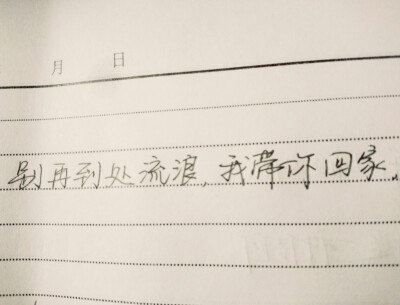 月 日
别再到处流浪,我带你回家.